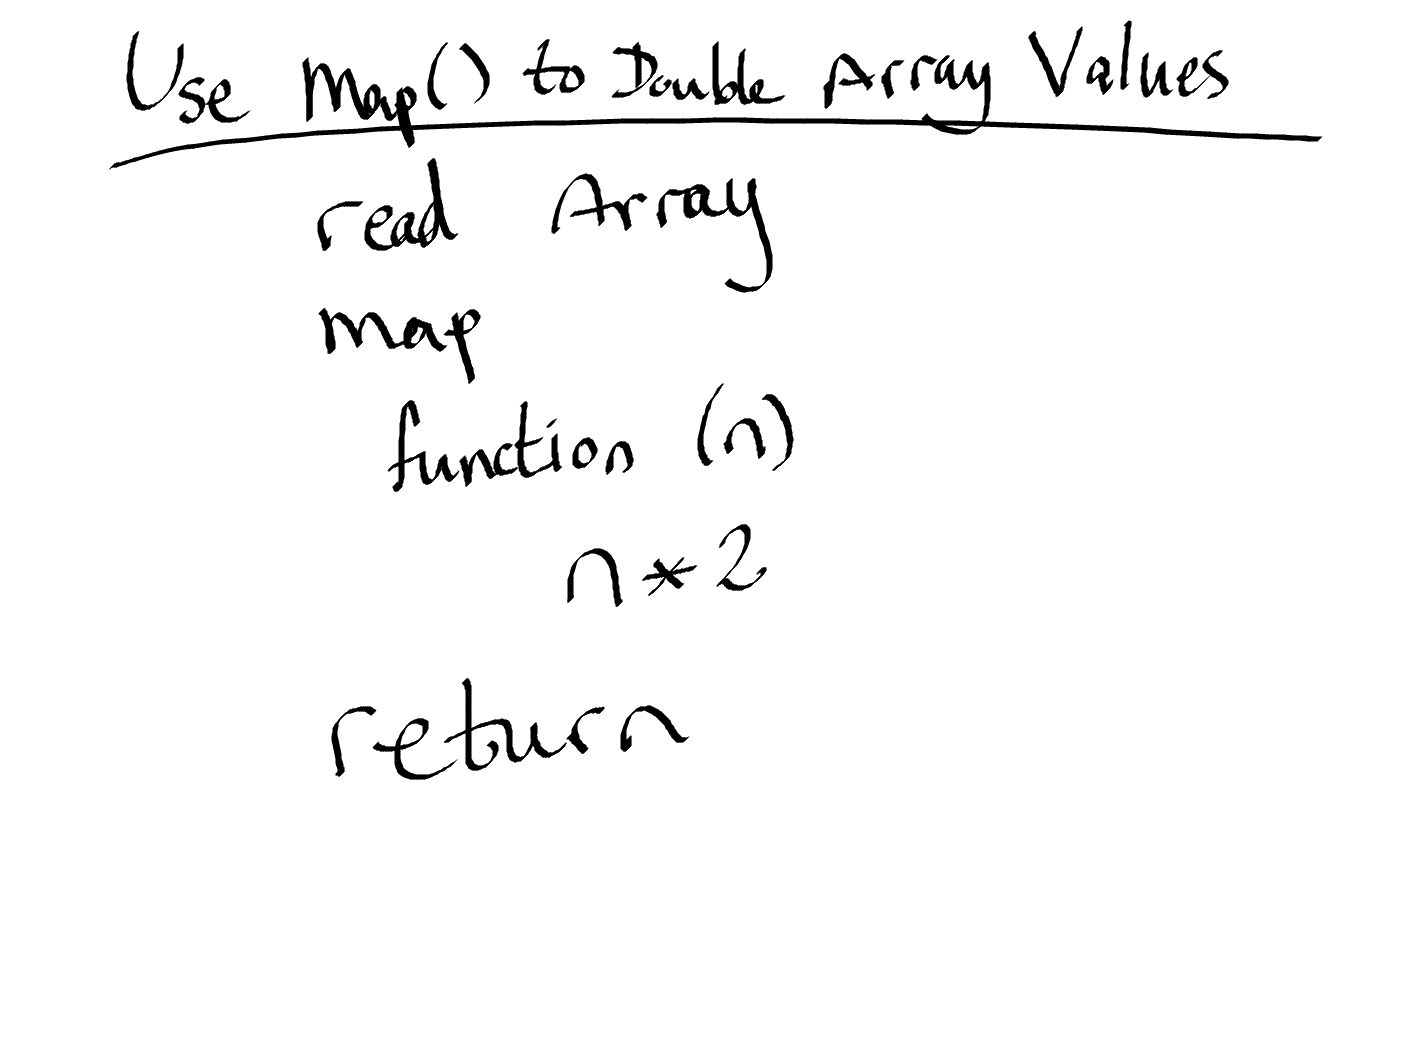 Use Map() to Double Array Values
read Array
map
function (n)
n*2
return